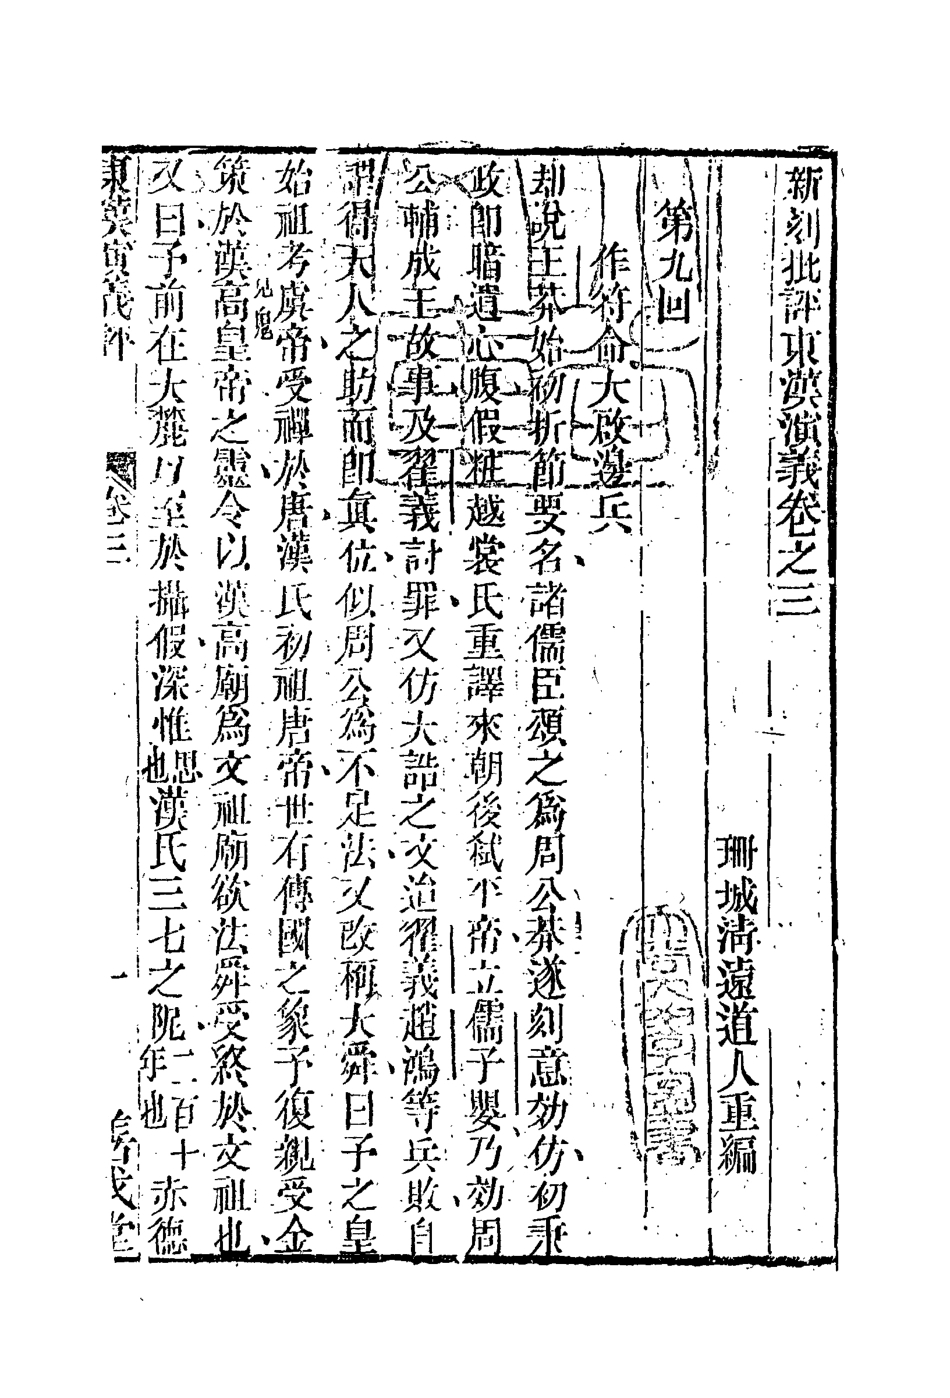 新刻批評東漢演義卷之三
珊城清遠道人重編
第九回
作符命大啟邊兵
却說王莽始初折節要名諸儒臣頌之爲周公莽遂刻意効仿初秉
政即暗遣心腹假粧越裳氏重譯來朝後弑平帝立儒子嬰乃効周
公輔成王故事及翟義討罪又仿大誥之文迨翟義趙鴻等兵敗自
謂得天人之助而即眞位似周公爲不足法又改稱大舜曰予之皇
始祖考虞帝受禪於唐漢氏初祖唐帝世有傳國之象予復親受金
見鬼
策於漢高皇帝之靈令以漢高廟爲文祖廟欲法舜受終於文祖也
又曰予前在大麓以至於攝假深惟思也漢氏三七之阨二百十年也赤德
東漢演義評 卷三 一 善成堂